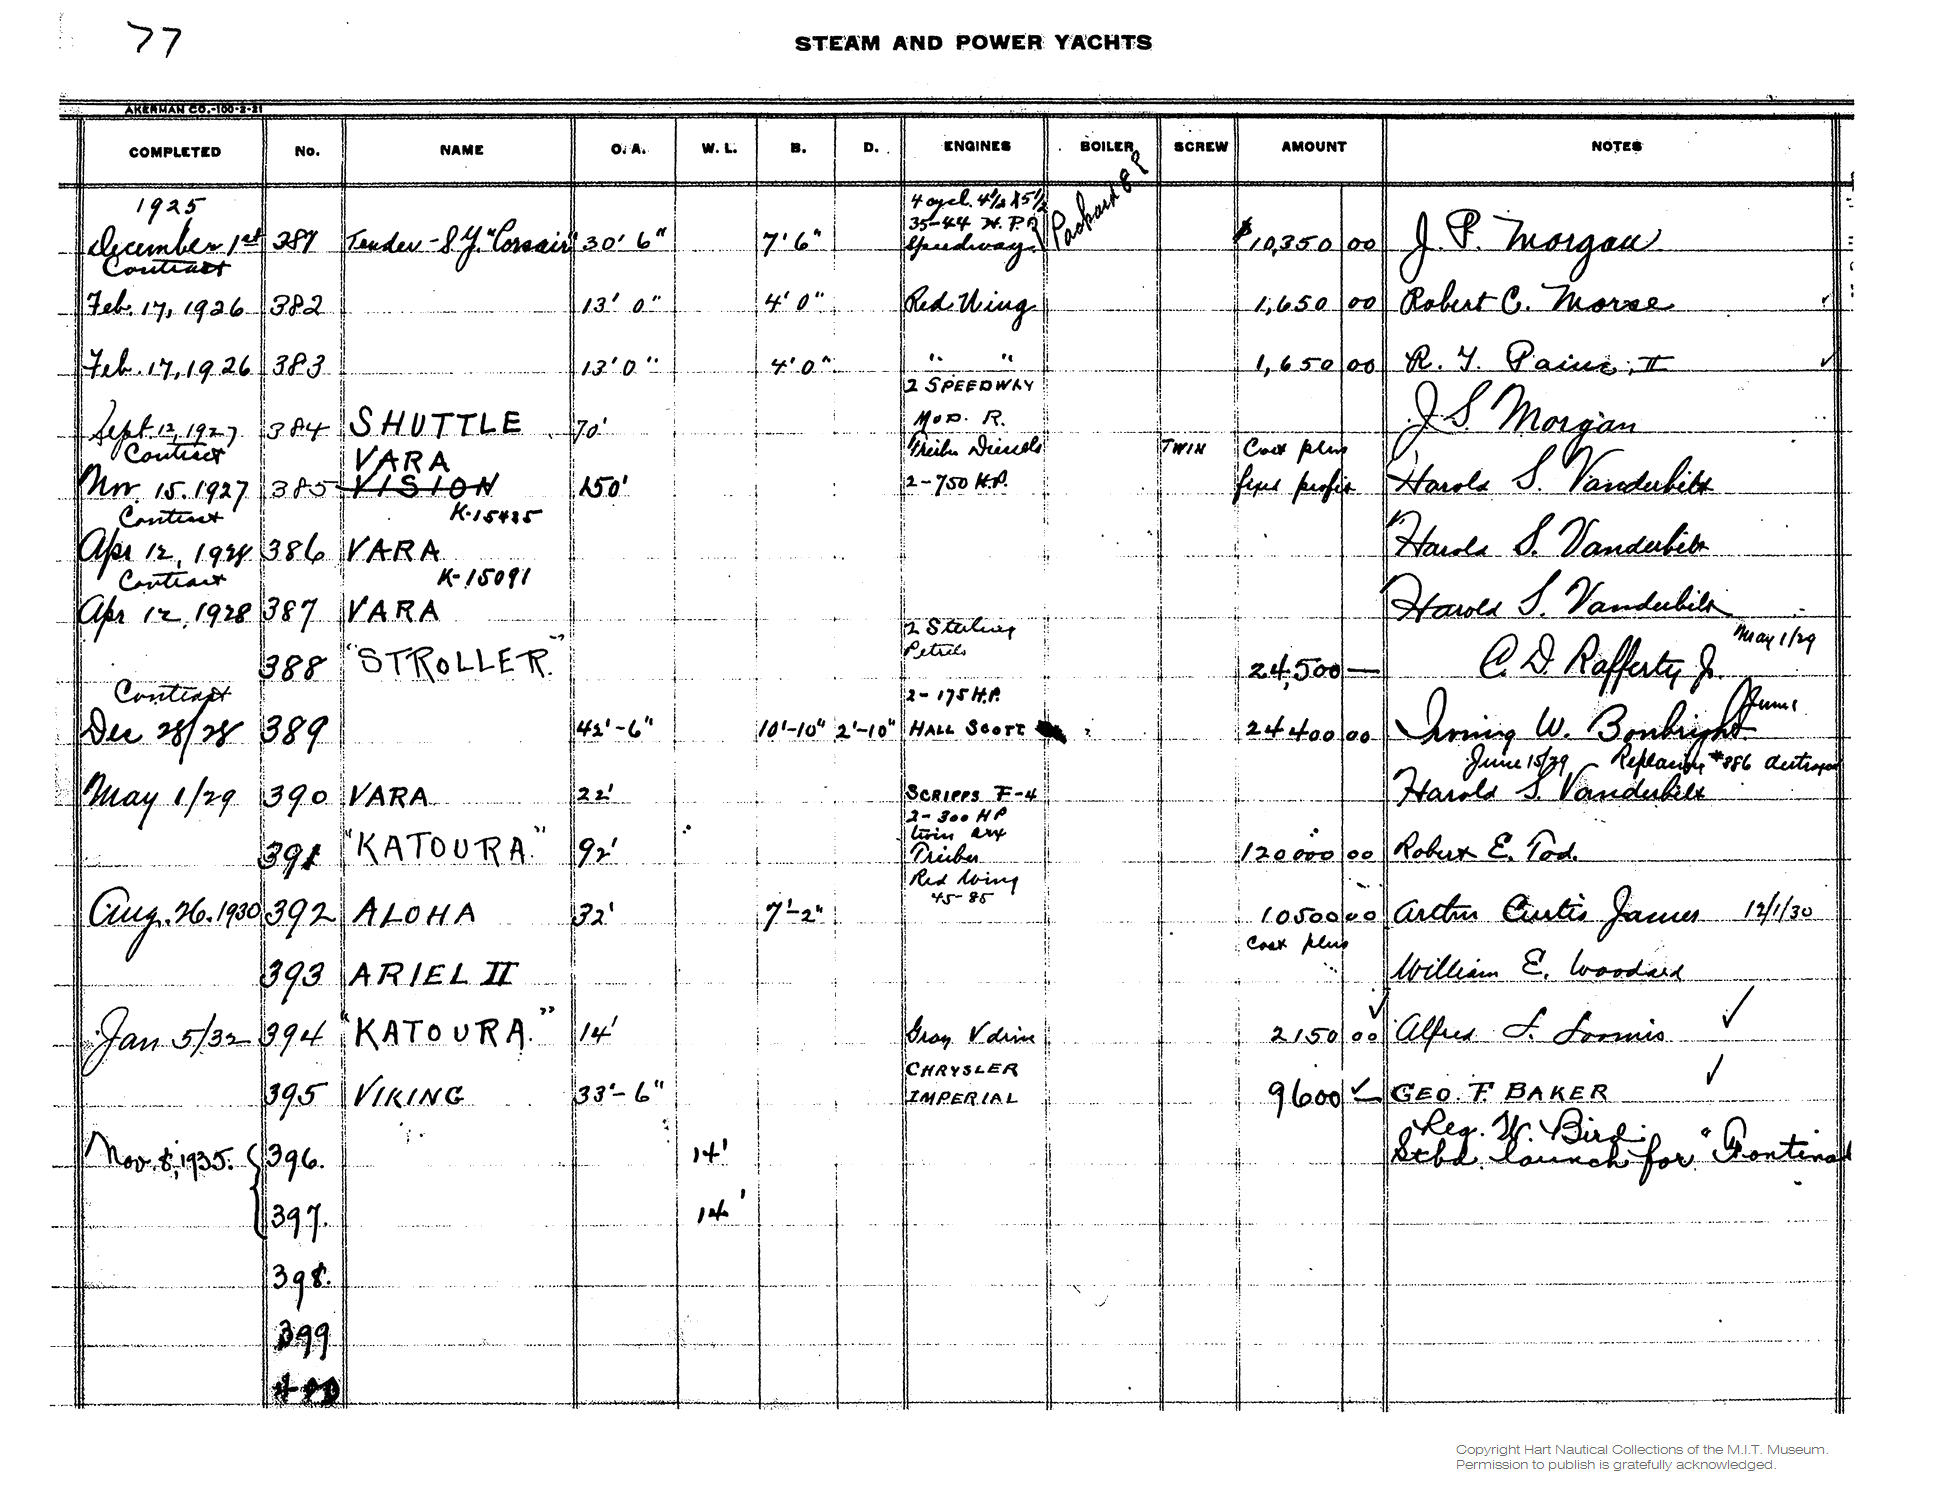 77
STEAM AND POWER YACHTS
AKERMAN CO.-100-2-21
COMPLETED No. NAME O.A. W.L. B. D. ENGINES BOILER SCREW AMOUNT NOTES
1925 4 cycl. 4½ x 5½
35-44 H.P.
December 1st 381 Tender - S.Y. "Corsair" 30' 6" 7' 6" Speedway Packard 8 $10,350 00 J. P. Morgan
Contract
Feb. 17, 1926 382 13' 0" 4' 0" Red Wing 1,650 00 Robert C. Morse
Feb. 17, 1926 383 13' 0" 4' 0" " " 1,650 00 R. T. Paine, II ✓
2 SPEEDWAY
Sept 12, 1927 384 SHUTTLE 70' MOD. R. J. S. Morgan
Contract VARA Treiber Diesels TWIN Cost plus
Nov. 15. 1927 385 VISION 150' 2-750 H.P. fixed profit Harold S. Vanderbilt
Contract K-15435
Apr 12, 1928 386 VARA Harold S. Vanderbilt
Contract K-15091
Apr 12, 1928 387 VARA Harold S. Vanderbilt
2 Sterling May 1/29
388 "STROLLER." Petrels 24,500 — C. D. Rafferty Jr.
Contract 2-175 H.P. June 1
Dec 28/28 389 42'-6" 10'-10" 2'-10" HALL SCOTT 24400 00 Irving W. Bonbright
June 15/29 Replacing #386 destroyed
May 1/29 390 VARA 22' SCRIPPS F-4 Harold S. Vanderbilt
2-300 HP
twin
391 "KATOURA." 92' Treiber 120000 00 Robert E. Tod.
Red Wing
45-85
Aug. 26. 1930 392 ALOHA 32' 7'-2" 10500 00 Arthur Curtis James 12/1/30
Cost plus
393 ARIEL II William E. Woodard
Jan 5/32 394 "KATOURA." 14' Gray V drive 2150 00 ✓ Alfred F. Loomis ✓
CHRYSLER
395 VIKING 33'-6" IMPERIAL 9600 ✓— GEO. F. BAKER ✓
Reg. W. Bird.
Nov. 8, 1935. 396. 14' Stbd. launch for
397. 14'
398.
399
400
Copyright Hart Nautical Collections of the M.I.T. Museum.
Permission to publish is gratefully acknowledged.